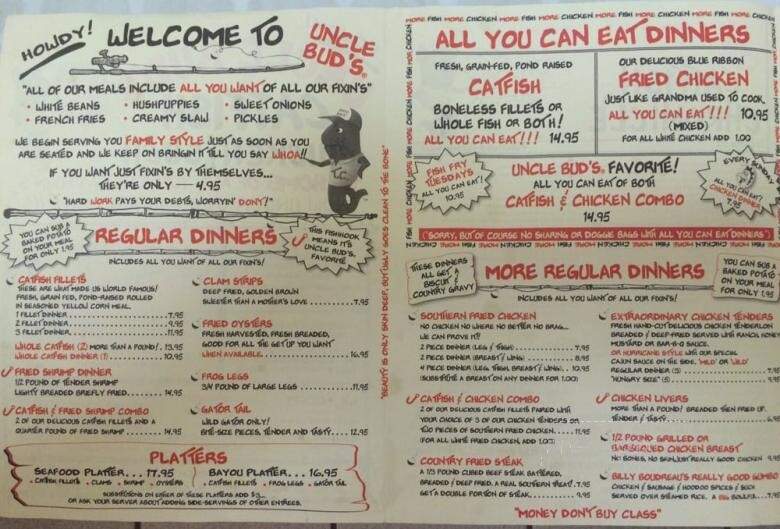 HOWDY!
WELCOME TO
UNCLE BUD'S®
"ALL OF OUR MEALS INCLUDE ALL YOU WANT OF ALL OUR FIXIN'S"
• WHITE BEANS • HUSHPUPPIES • SWEET ONIONS
• FRENCH FRIES • CREAMY SLAW • PICKLES
WE BEGIN SERVING YOU FAMILY STYLE JUST AS SOON AS YOU
ARE SEATED AND WE KEEP ON BRINGIN IT TILL YOU SAY WHOA!!
IF YOU WANT JUST FIXIN'S BY THEMSELVES...
THEY'RE ONLY — 4.95
"HARD WORK PAYS YOUR DEBTS, WORRYIN' DON'T"
YOU CAN SUB A
BAKED POTATO
ON YOUR MEAL
FOR ONLY 1.95
REGULAR DINNERS
THIS FISHHOOK
MEANS IT'S
UNCLE BUD'S
FAVORITE
INCLUDES ALL YOU WANT OF ALL OUR FIXIN'S!
CATFISH FILLETS
THESE ARE WHAT MADE US WORLD FAMOUS!
FRESH, GRAIN FED, POND-RAISED ROLLED
IN SEASONED YELLOW CORN MEAL.
1 FILLET DINNER 7.95
2 FILLET DINNER 9.95
3 FILLET DINNER 11.95
WHOLE CATFISH (2) MORE THAN A POUND! 13.95
WHOLE CATFISH DINNER (1) 10.95
FRIED SHRIMP DINNER
1/2 POUND OF TENDER SHRIMP
LIGHTLY BREADED BRIEFLY FRIED 14.95
CATFISH & FRIED SHRIMP COMBO
2 OF OUR DELICIOUS CATFISH FILLETS AND A
QUARTER POUND OF FRIED SHRIMP 14.95
CLAM STRIPS
DEEP FRIED, GOLDEN BROWN
SWEETER THAN A MOTHER'S LOVE 7.95
FRIED OYSTERS
FRESH HARVESTED, FRESH BREADED,
GOOD FOR ALL THE GET UP YOU WANT
WHEN AVAILABLE 16.95
FROG LEGS
3/4 POUND OF LARGE LEGS 11.95
GATOR TAIL
WILD GATOR ONLY!
BITE-SIZE PIECES, TENDER AND TASTY 12.95
PLATTERS
SEAFOOD PLATTER...17.95
• CATFISH FILLETS • CLAMS • SHRIMP • OYSTERS
BAYOU PLATTER...16.95
• CATFISH FILLETS • FROG LEGS • GATOR TAIL
SUBSTITUTIONS ON EITHER OF THESE PLATTERS ADD
OR ASK YOUR SERVER ABOUT ADDING SIDE-SERVINGS OF OTHER ENTREES.
"BEAUTY IS ONLY SKIN DEEP, BUT UGLY GOES CLEAN TO THE BONE"
MORE FISH MORE CHICKEN MORE FISH MORE CHICKEN MORE FISH MORE CHICKEN
ALL YOU CAN EAT DINNERS
FRESH, GRAIN-FED, POND RAISED
CATFISH
BONELESS FILLETS OR
WHOLE FISH OR BOTH!
ALL YOU CAN EAT!!! 14.95
OUR DELICIOUS BLUE RIBBON
FRIED CHICKEN
JUST LIKE GRANDMA USED TO COOK.
ALL YOU CAN EAT!!! 10.95
(MIXED)
FOR ALL WHITE CHICKEN ADD 1.00
FISH FRY
TUESDAYS
ALL YOU CAN EAT!
10.95
UNCLE BUD'S® FAVORITE!
ALL YOU CAN EAT OF BOTH
CATFISH & CHICKEN COMBO
14.95
EVERY SUNDAY
ALL YOU CAN EAT!
CHICKEN DINNER
7.95
(SORRY, BUT OF COURSE NO SHARING OR DOGGIE BAGS WITH ALL YOU CAN EAT DINNERS)
THESE DINNERS
ALL GET A
BISCUIT &
COUNTRY GRAVY
MORE REGULAR DINNERS
YOU CAN SUB A
BAKED POTATO
ON YOUR MEAL
FOR ONLY 1.95
INCLUDES ALL YOU WANT OF ALL OUR FIXIN'S!
SOUTHERN FRIED CHICKEN
NO CHICKEN NO WHERE NO BETTER NO BRAG...
WE CAN PROVE IT!!
2 PIECE DINNER (LEG / THIGH) 7.95
2 PIECE DINNER (BREAST / WING) 8.95
4 PIECE DINNER (LEG, THIGH, BREAST / WING) 10.95
(SUBSTITUTE A BREAST ON ANY DINNER FOR 1.00)
CATFISH & CHICKEN COMBO
2 OF OUR DELICIOUS CATFISH FILLETS PAIRED WITH
YOUR CHOICE OF 3 OF OUR CHICKEN TENDERS OR
TWO PIECES OF SOUTHERN FRIED CHICKEN 11.95
(FOR ALL WHITE FRIED CHICKEN, ADD 1.00)
COUNTRY FRIED STEAK
A 1/3 POUND CUBED BEEF STEAK BATTERED,
BREADED / DEEP FRIED. A REAL SOUTHERN TREAT! 7.95
GET A DOUBLE PORTION OF STEAK 9.95
EXTRAORDINARY CHICKEN TENDERS
FRESH HAND-CUT DELICIOUS CHICKEN TENDERLOIN
BREADED / DEEP-FRIED SERVED WITH RANCH, HONEY
MUSTARD OR BAR-B-Q SAUCE.
OR HURRICANE STYLE WITH OUR SPECIAL
CAJUN SAUCE ON THE SIDE. "MILD" OR "WILD"
REGULAR DINNER (3)
"HUNGRY SIZE" (5)
CHICKEN LIVERS
MORE THAN A POUND! BREADED THEN FRIED UP
TENDER / TASTY
1/2 POUND GRILLED OR
BARBEQUED CHICKEN BREAST
NO BONES, NO SKIN, JUST REALLY GOOD CHICKEN 9.95
BILLY BOUDREAU'S REALLY GOOD GUMBO
CHICKEN / SAUSAGE / HOODOO SPICES /
SERVED OVER STEAMED RICE. A BIG BOWLFUL
"MONEY DON'T BUY CLASS"